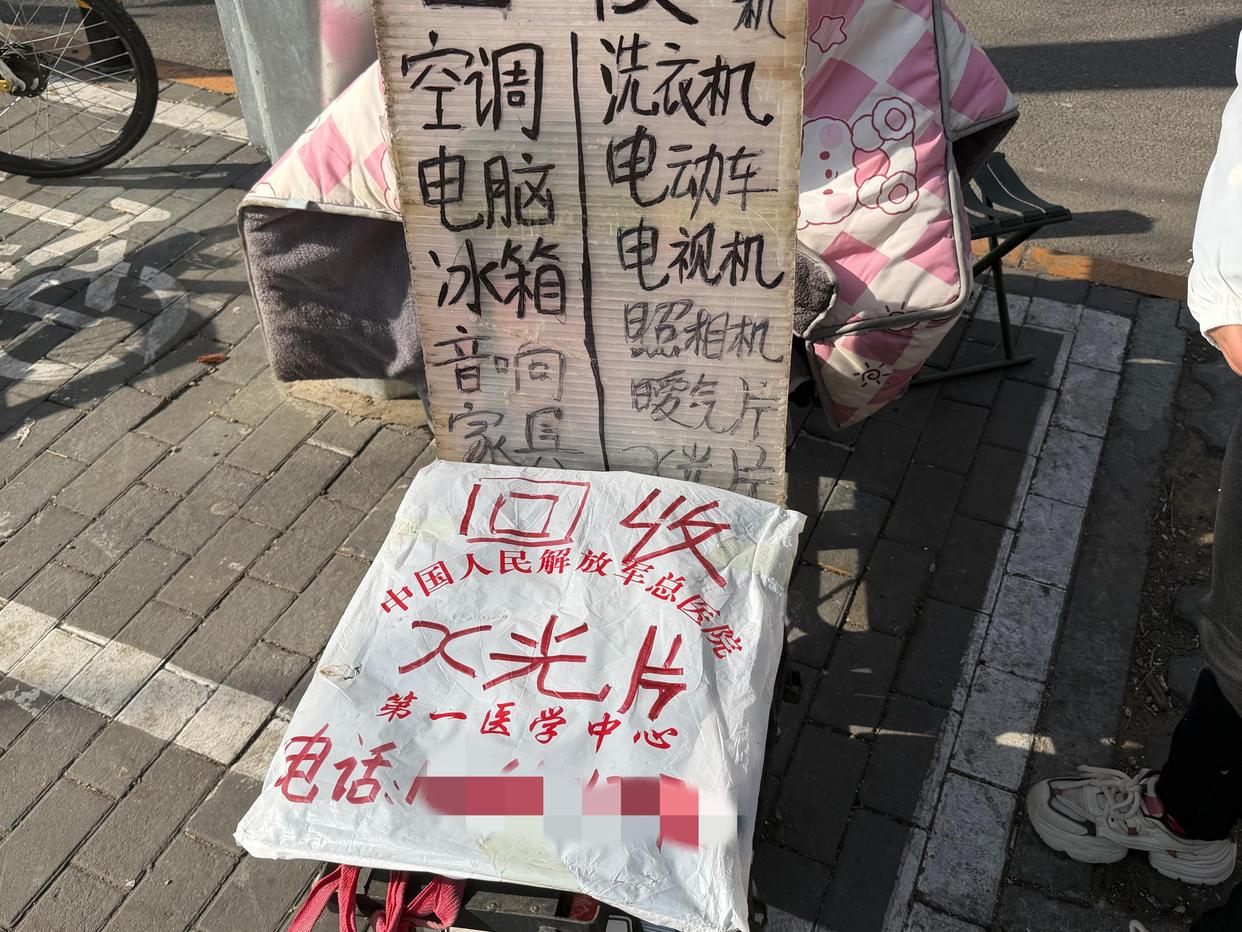 机
空调
电脑
冰箱
音响
家具
洗衣机
电动车
电视机
照相机
暧气片
X光片
回收
中国人民解放军总医院
X光片
第一医学中心
电话: